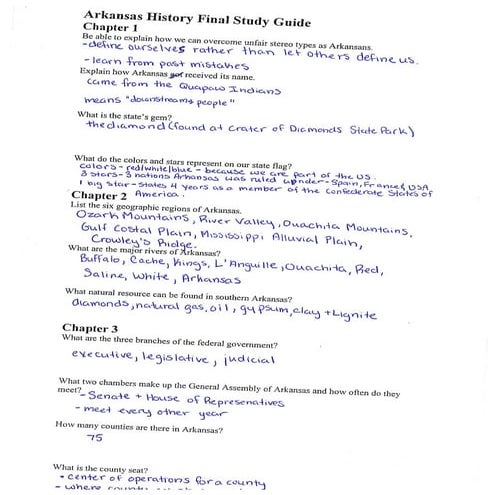 Arkansas History Final Study Guide
Chapter 1
Be able to explain how we can overcome unfair stereo types as Arkansans.
-define ourselves rather than let others define us.
- learn from past mistakes
Explain how Arkansas got received its name.
came from the Quapaw Indians
means "downstream people"
What is the state's gem?
the diamond (found at Crater of Diamonds State Park)
What do the colors and stars represent on our state flag?
colors - red/white/blue - because we are part of the US
3 stars - 3 nations Arkansas was ruled under - Spain, France & USA
1 big star - states 4 years as a member of the Confederate States of
Chapter 2 America.
List the six geographic regions of Arkansas.
Ozark Mountains, River Valley, Ouachita Mountains,
Gulf Costal Plain, Mississippi Alluvial Plain,
Crowley's Ridge.
What are the major rivers of Arkansas?
Buffalo, Cache, Kings, L'Anguille, Ouachita, Red,
Saline, White, Arkansas
What natural resource can be found in southern Arkansas?
diamonds, natural gas, oil, gypsum, clay + Lignite
Chapter 3
What are the three branches of the federal government?
executive, legislative, judicial
What two chambers make up the General Assembly of Arkansas and how often do they
meet? - Senate + House of Represenatives
- meet every other year
How many counties are there in Arkansas?
75
What is the county seat?
• center of operations for a county
- where